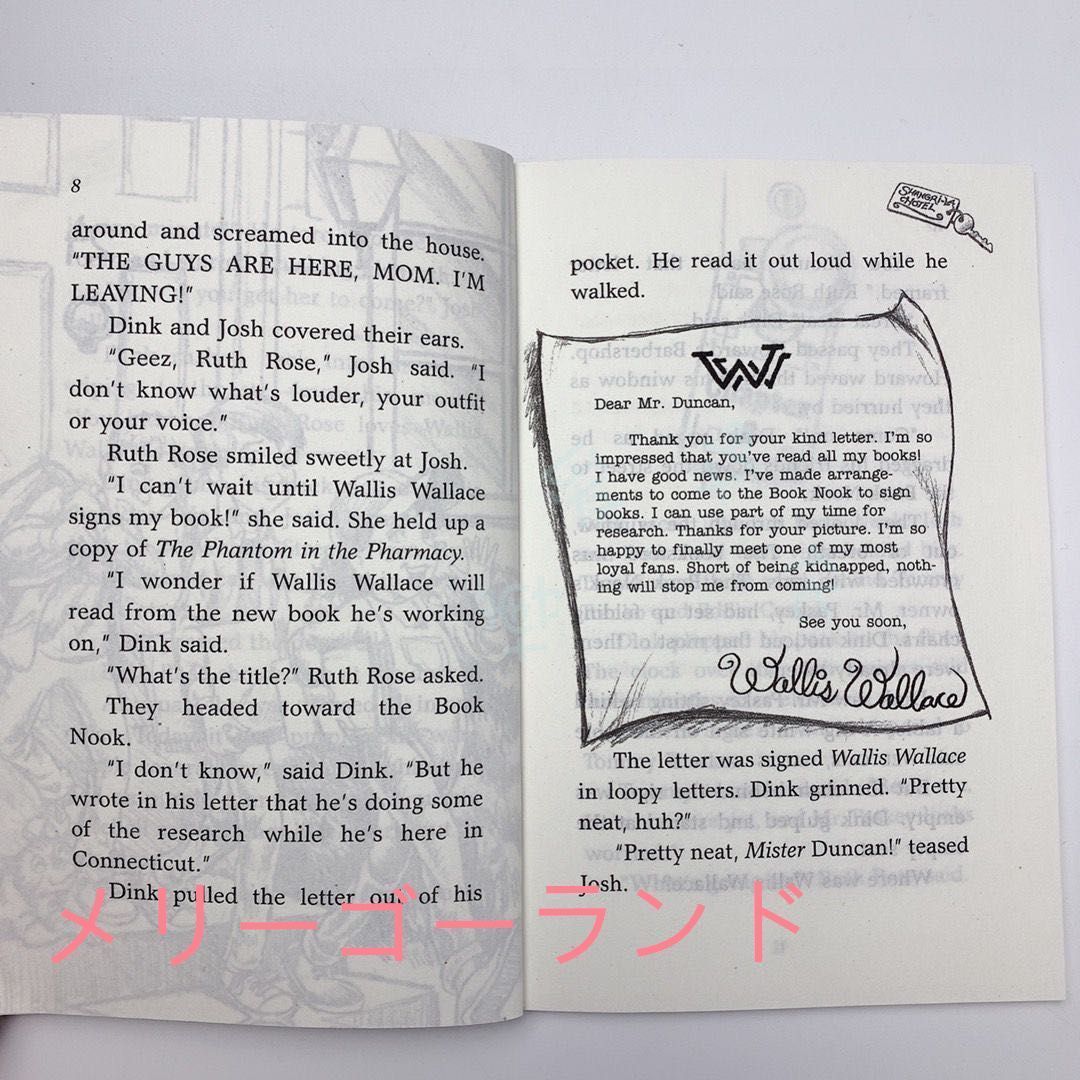 8
around and screamed into the house.
"THE GUYS ARE HERE, MOM. I'M
LEAVING!"
Dink and Josh covered their ears.
"Geez, Ruth Rose," Josh said. "I
don't know what's louder, your outfit
or your voice."
Ruth Rose smiled sweetly at Josh.
"I can't wait until Wallis Wallace
signs my book!" she said. She held up a
copy of The Phantom in the Pharmacy.
"I wonder if Wallis Wallace will
read from the new book he's working
on," Dink said.
"What's the title?" Ruth Rose asked.
They headed toward the Book
Nook.
"I don't know," said Dink. "But he
wrote in his letter that he's doing some
of the research while he's here in
Connecticut."
Dink pulled the letter out of his
SHANGRI-LA
HOTEL
pocket. He read it out loud while he
walked.
WW
Dear Mr. Duncan,
Thank you for your kind letter. I'm so
impressed that you've read all my books!
I have good news. I've made arrange-
ments to come to the Book Nook to sign
books. I can use part of my time for
research. Thanks for your picture. I'm so
happy to finally meet one of my most
loyal fans. Short of being kidnapped, noth-
ing will stop me from coming!
See you soon,
Wallis Wallace
The letter was signed Wallis Wallace
in loopy letters. Dink grinned. "Pretty
neat, huh?"
"Pretty neat, Mister Duncan!" teased
Josh.
メリーゴーランド